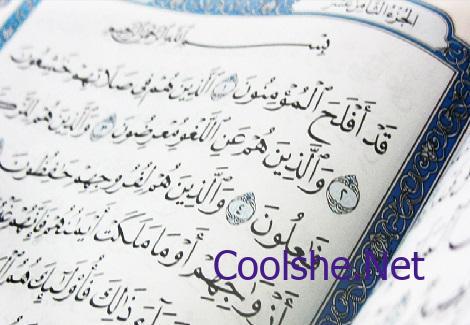 الجزء الثامن عشر
بسم الله الرحمن الرحيم
قَدْ أَفْلَحَ الْمُؤْمِنُونَ ١ الَّذِينَ هُمْ فِي صَلَاتِهِمْ خَاشِعُونَ
٢ وَالَّذِينَ هُمْ عَنِ اللَّغْوِ مُعْرِضُونَ ٣ وَالَّذِينَ هُمْ
فَاعِلُونَ ٤ وَالَّذِينَ هُمْ لِفُرُوجِهِمْ حَافِظُونَ
أَزْوَاجِهِمْ أَوْ مَا مَلَكَتْ أَيْمَانُهُمْ فَإِنَّهُمْ
ذَلِكَ فَأُولَئِكَ هُمُ
Coolshe.Net